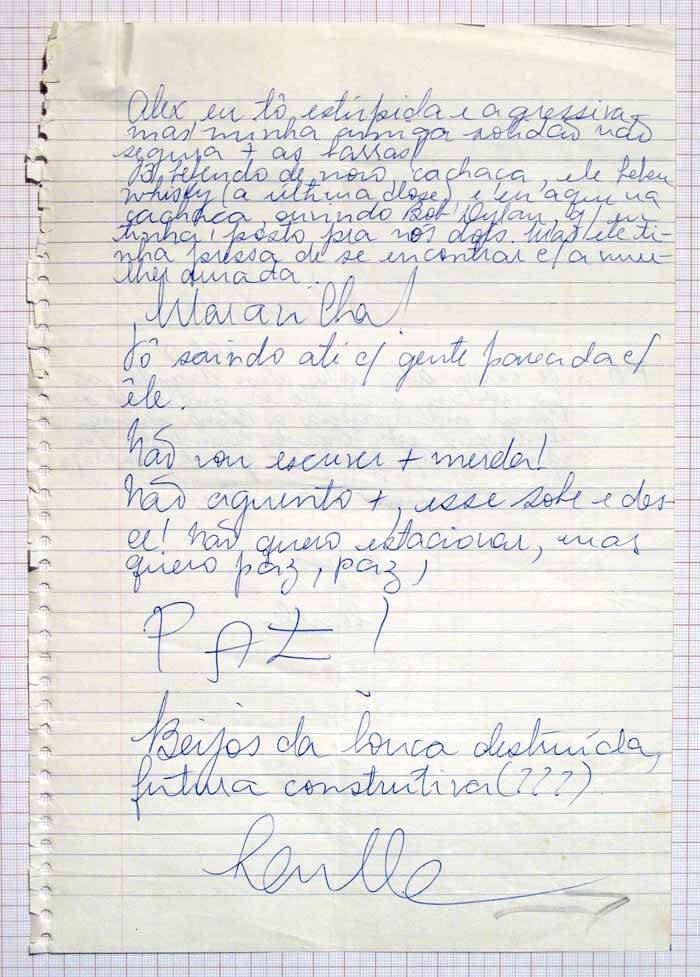 Alex eu tô estúpida e agressiva
mas minha amiga solidão não
segura + as barras!
Tô bebendo de novo, cachaça, ele bebeu
whisky (a última dose) e eu aqui na
cachaça, ouvindo Bob Dylan, q/ eu
tinha posto pra nós dois. Mas ele ti-
nha pressa de se encontrar c/ a mu-
lher amada.
Maravilha!
Tô saindo até c/ gente parecida c/
êle.
Não vou escrever + merda!
Não aguento +, esse sobe e des-
ce! Não quero estacionar, mas
quero paz, paz,
PAZ!
Beijos da louca destruída,
futura construtiva (???).